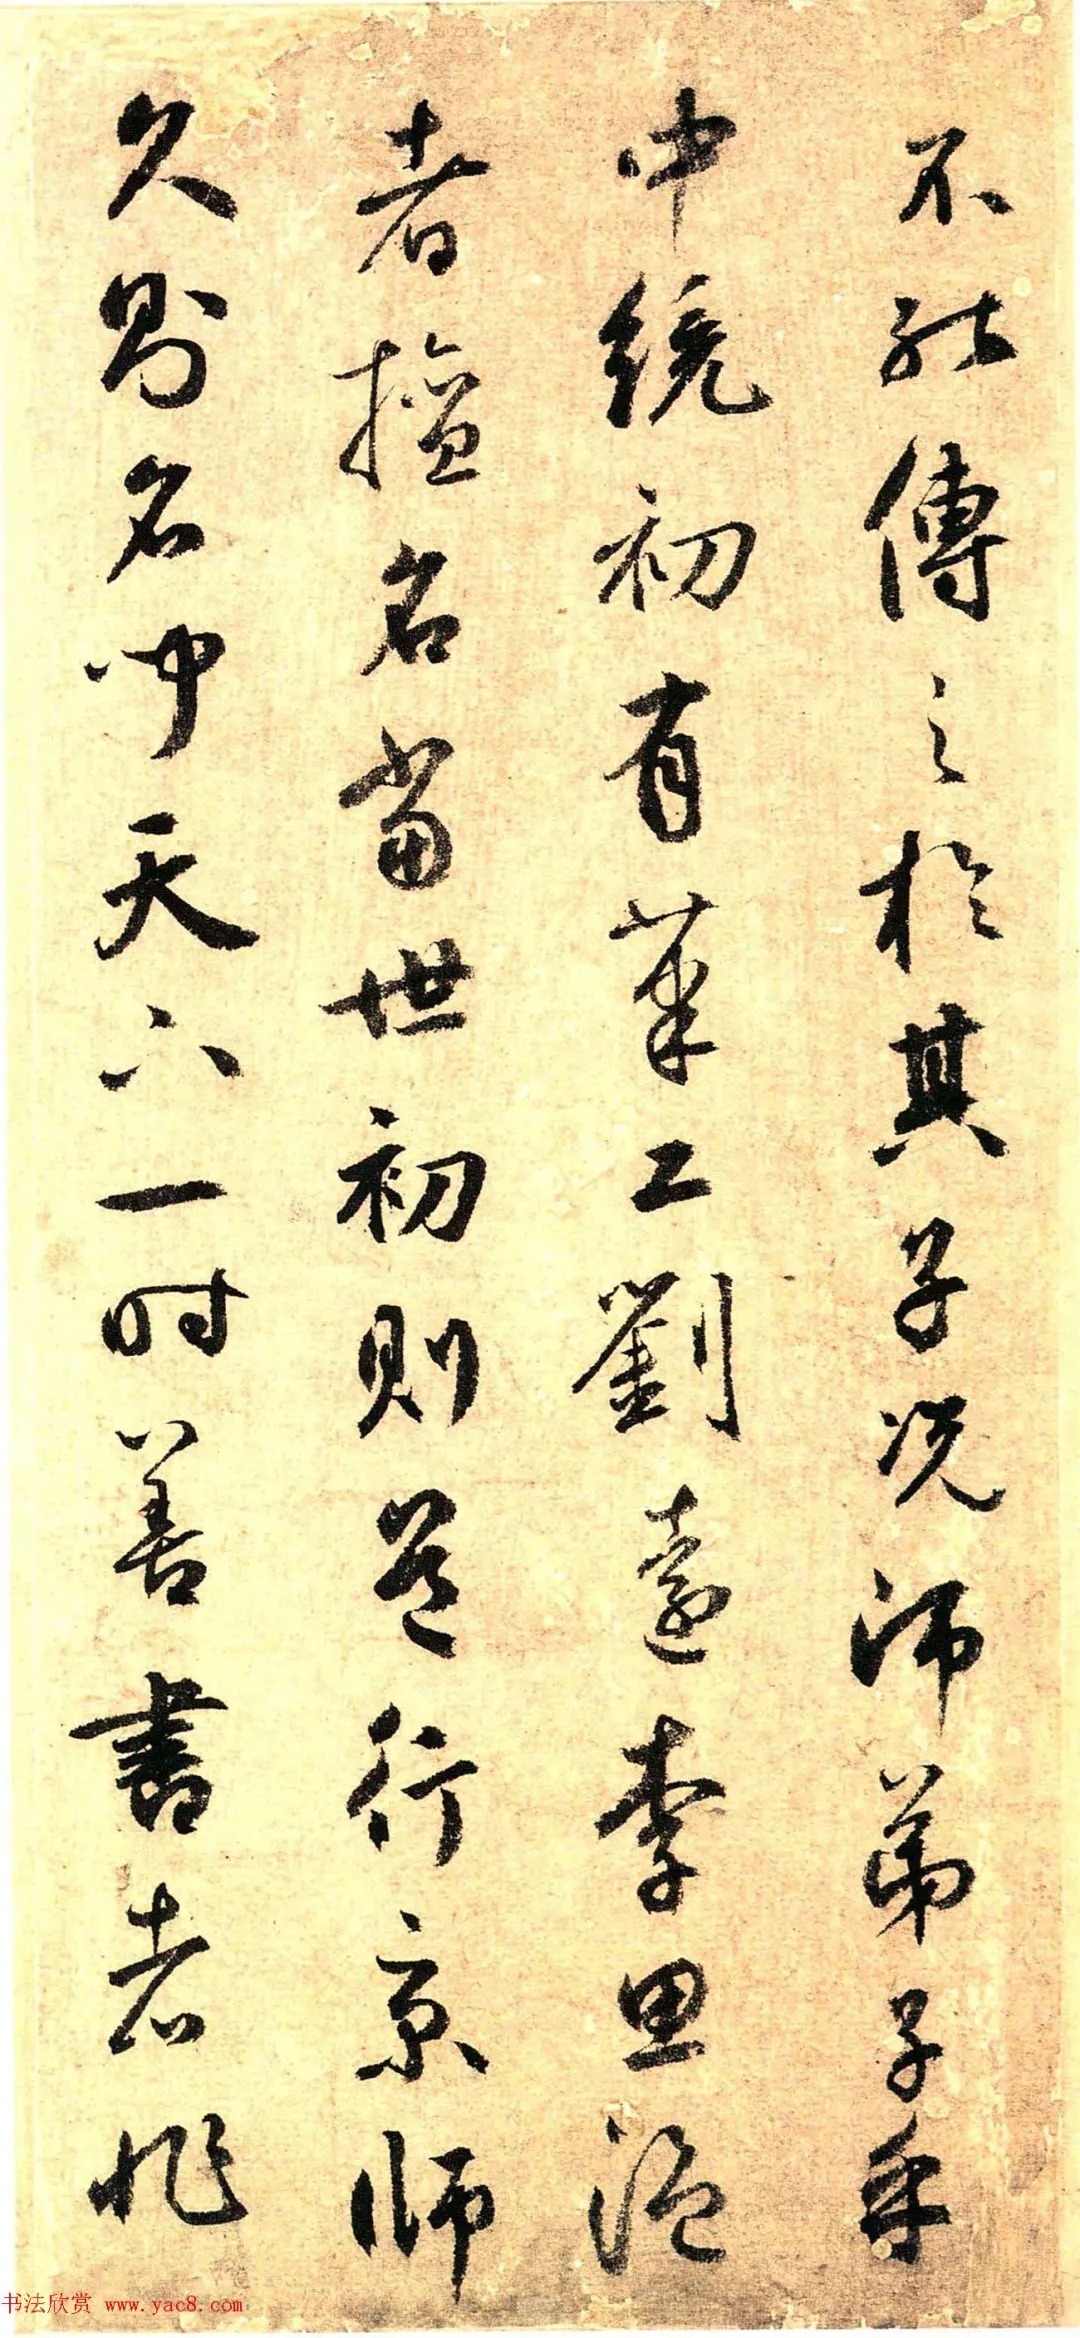 不能傳之於其子况師弟子乎
中統初有筆工劉遠李思温
者擅名當世初則名行京師
久則名聞天下一時善書者非
书法欣赏 www.yac8.com